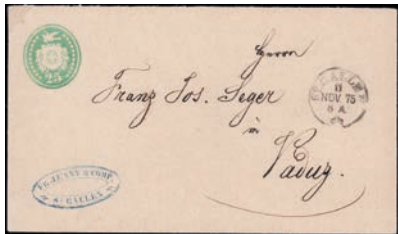 25
Herrn
Franz Jos. Seger
in
Vaduz.
ST. GALLEN
11
NOV. 75
8 A
& COMP.
ST. GALLEN